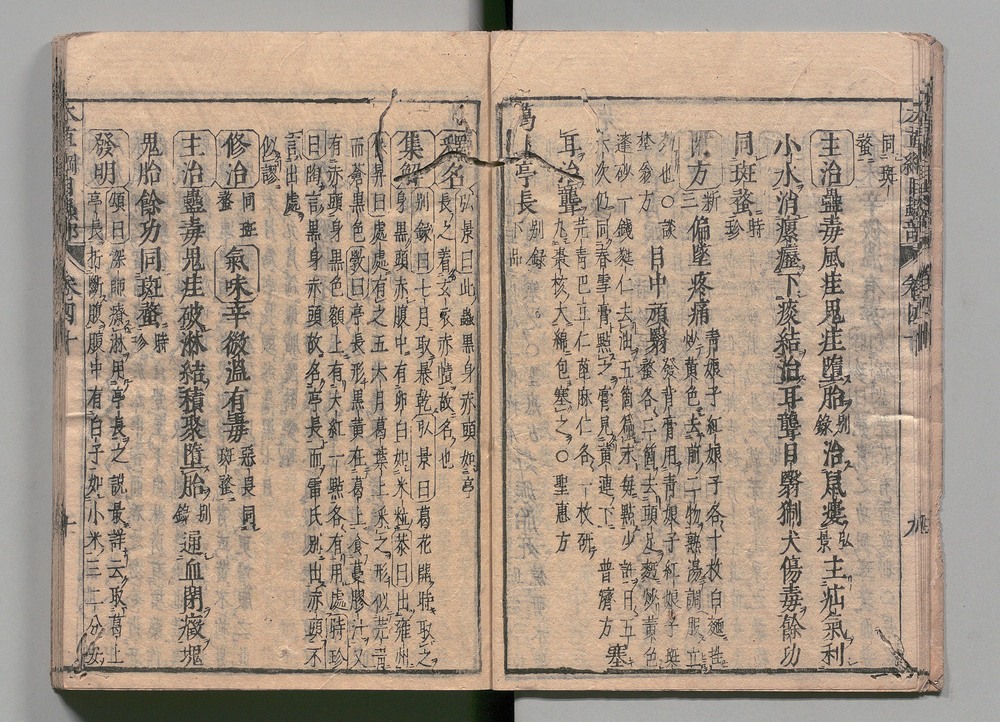 同斑
蝥
主治蠱毒風疰鬼疰墮胎別錄治鼠瘻弘景主疝氣利
小水消瘰癧下痰結治耳聾目翳猘犬傷毒餘功
同斑蝥時珍
附方新三偏墜疼痛青娘子紅娘子各十枚白麵拌
炒黃色去前二物熟湯調服立
效也〇談
埜翁方
目中頑翳發背膏用青娘子紅娘子斑
蝥各二箇去頭足麵炒黃色
蓬砂一錢蕤仁去油五箇為末每點少許日五
六次仍同春雪膏點之膏見黃連下普濟方塞
耳治聾芫青巴豆仁蓖麻仁各一枚研
丸棗核大綿包塞之〇聖惠方
葛上亭長別錄下品
釋名弘景曰此蟲黑身赤頭如亭
長之着玄衣赤幘故名也
集解別錄曰七月取暴乾弘景曰葛花開時取之
身黑頭赤腹中有卵白如米粒恭曰出雍州
保昇曰處處有之五六月葛葉上采之形似芫青
而蒼黑色斆曰亭長形黑黃在葛上食蔓膠汁又
有赤頭身黑色額上有大紅一點各有用處時珍
曰陶言黑身赤頭故名亭長而雷氏別出赤頭不
言出處
似謬
修治同斑蝥氣味辛微溫有毒惡畏同斑蝥
主治蠱毒鬼疰破淋結積聚墮胎別錄通血閉癥塊
鬼胎餘功同斑蝥時珍
發明頌曰深師療淋用亭長之說最詳云取葛上
亭長折斷腹腹中有白子如小米三二分安
本草綱目蟲部 卷四十 九
卷四十 十